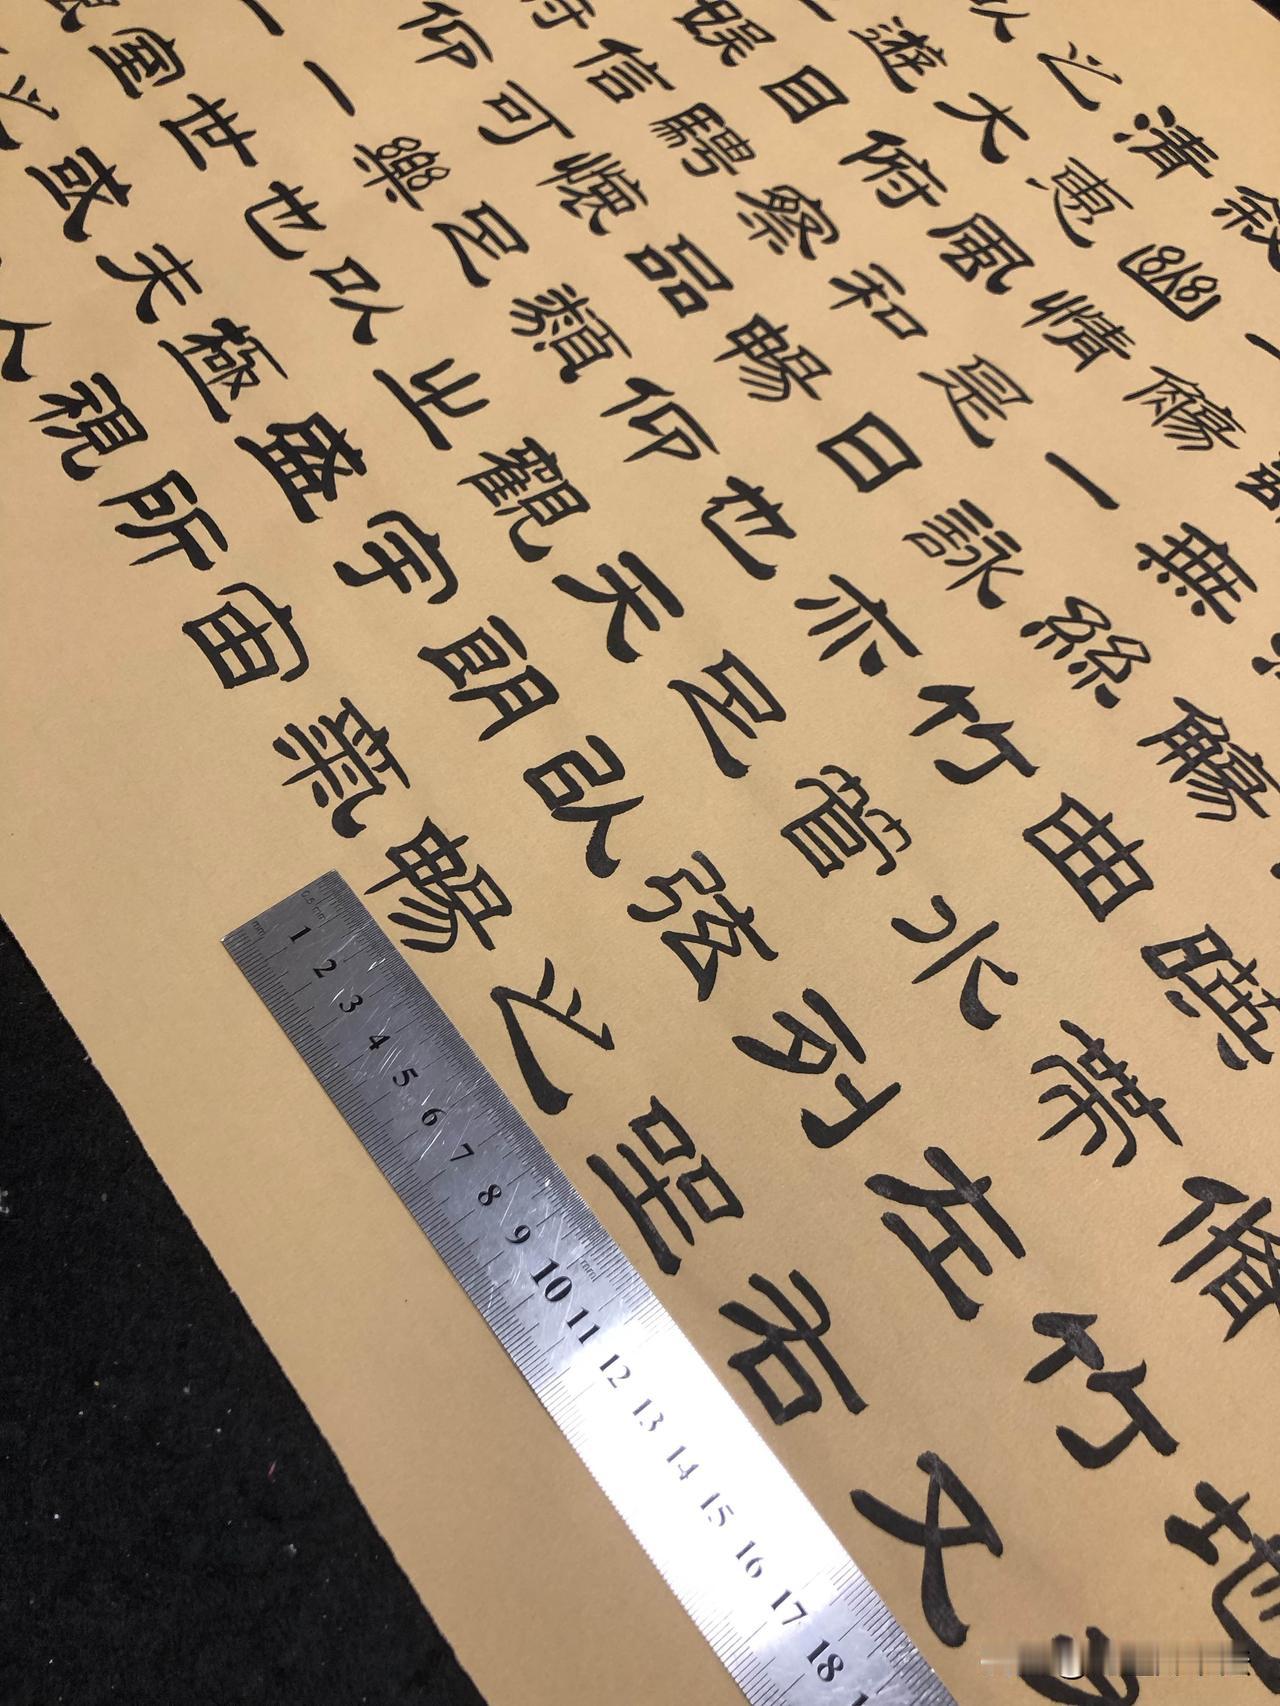 地
脩竹又
暎帶左右
觴曲水列坐
無絲竹管弦之
一觴一詠亦足以暢
敘幽情是日也天朗氣
清惠風和暢仰觀宇宙
之大俯察品類之盛所
以遊目騁懷足以極視
娛信可樂也夫人
俯仰一世或
一室之
1 2 3 4 5 6 7 8 9 10 11 12 13 14 15 16 17 18